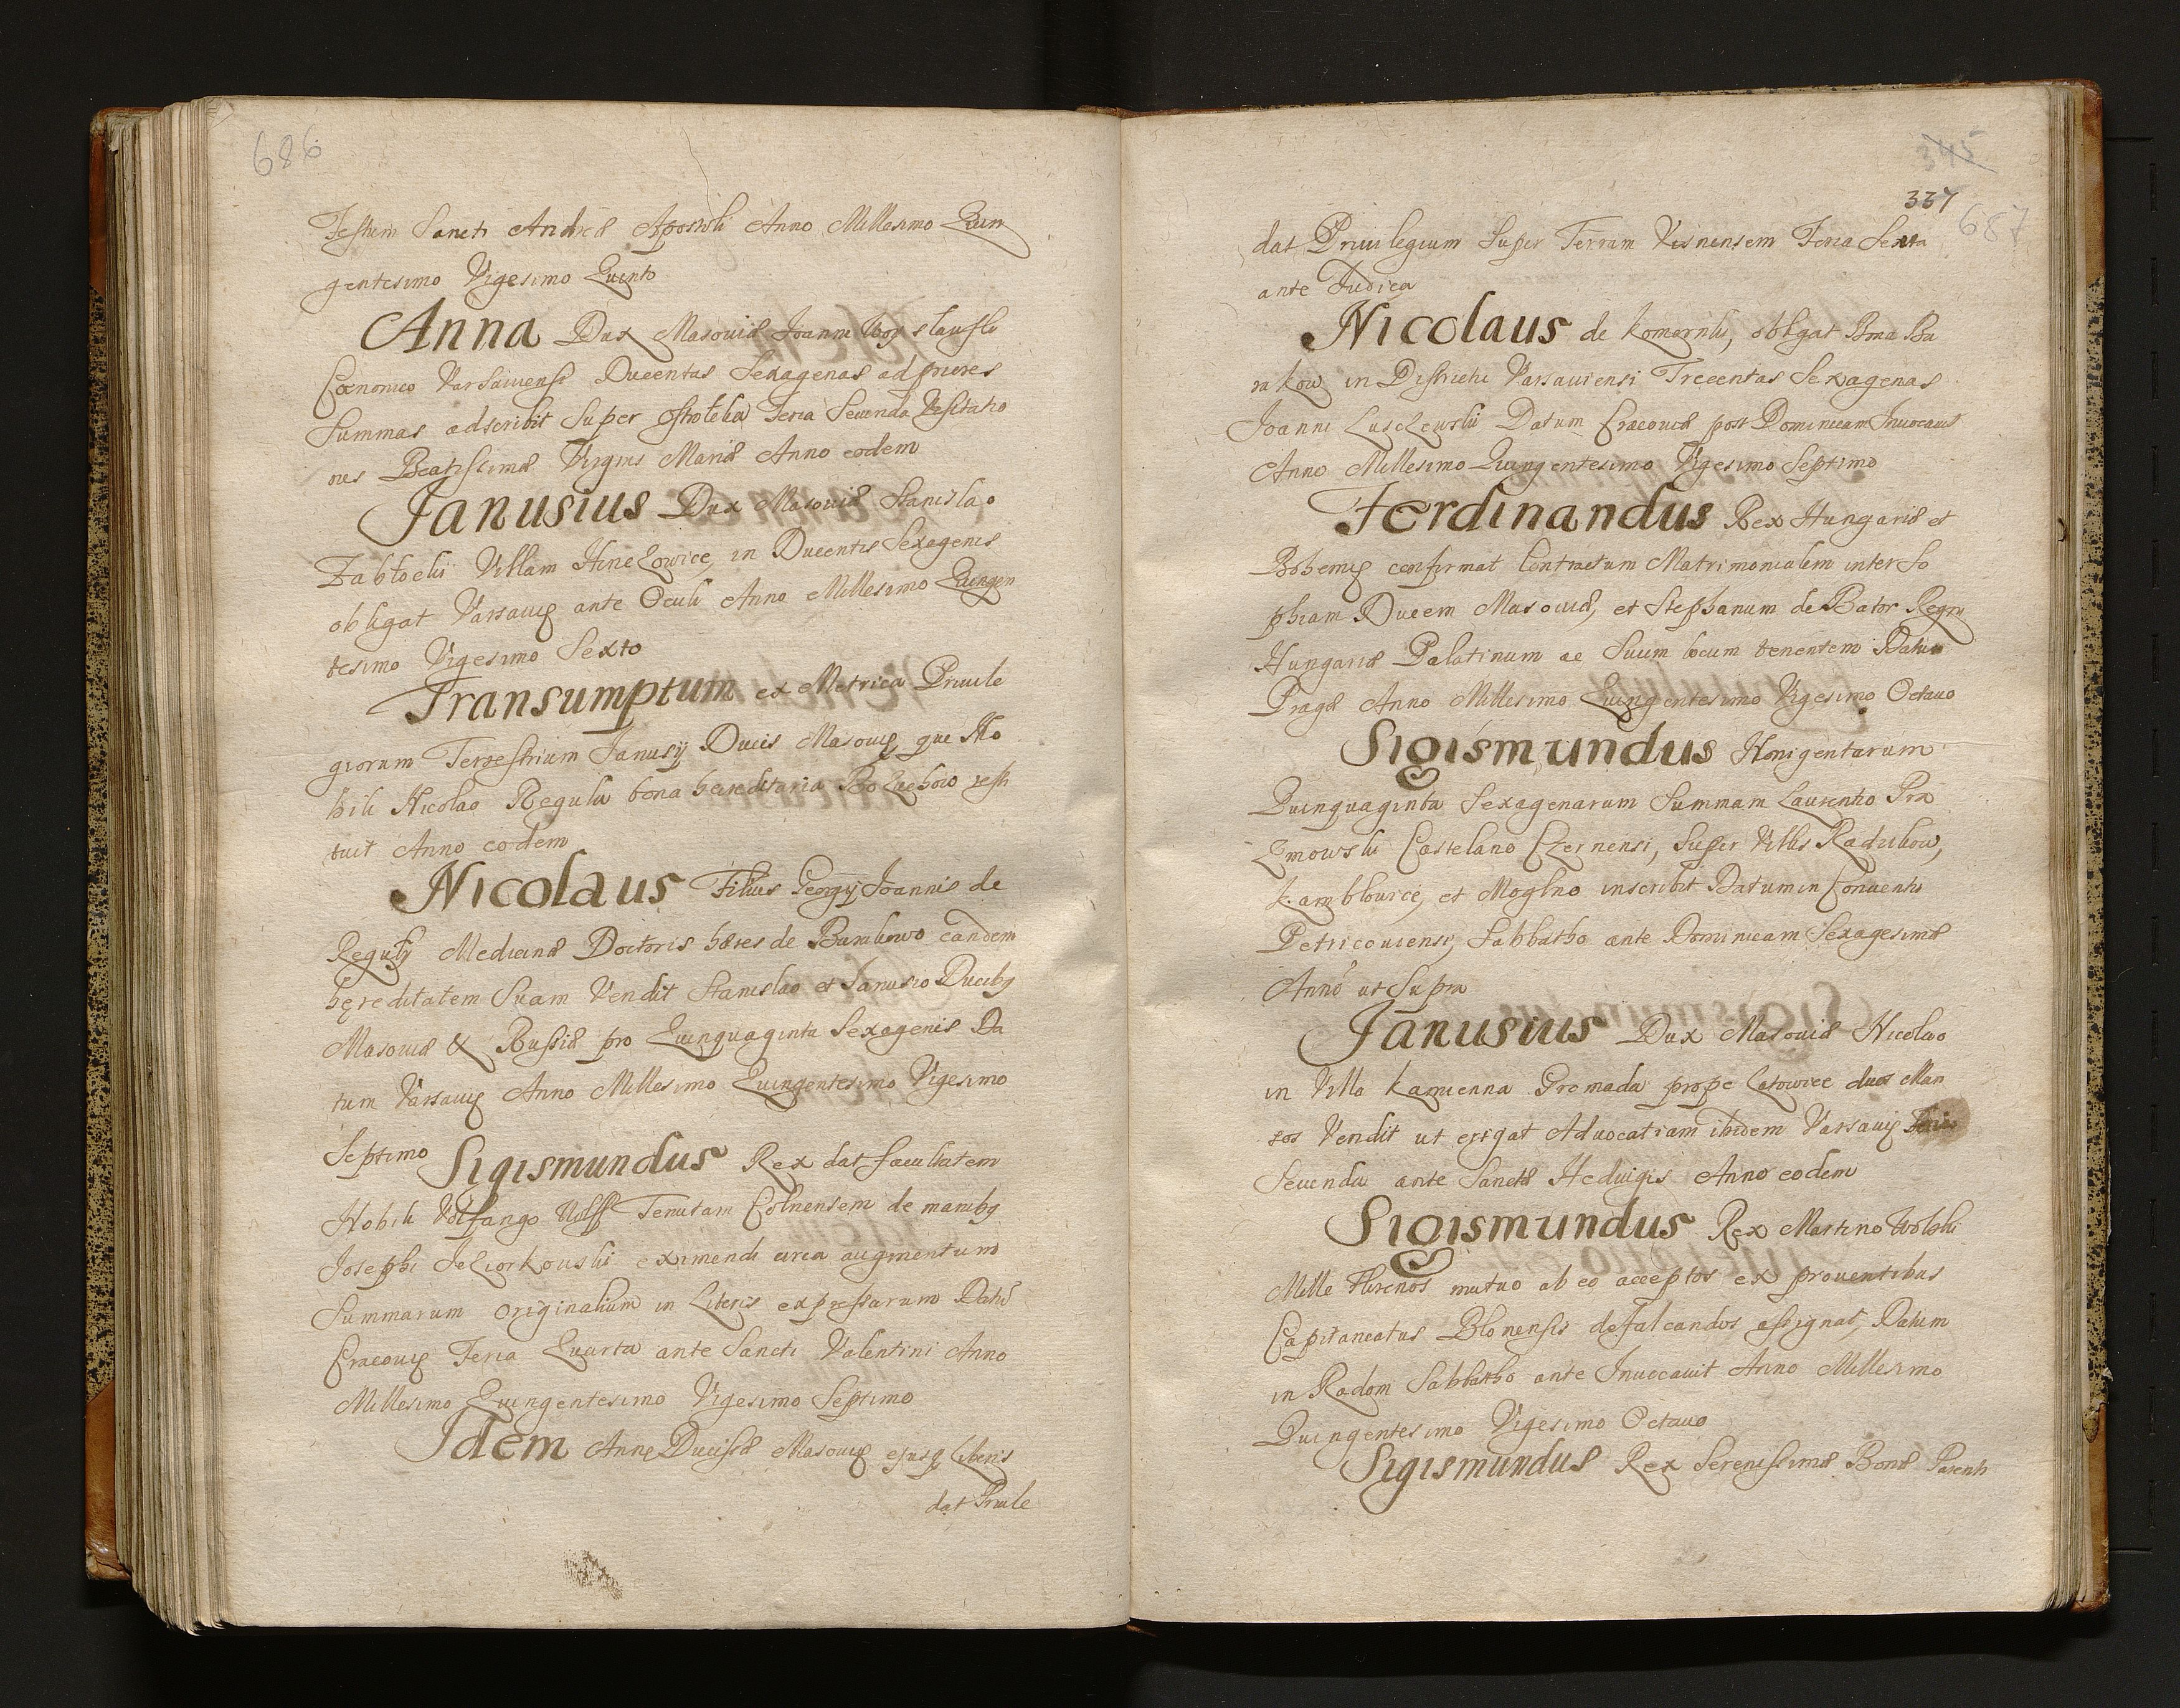 686
Festum Sancti Andreæ Apostoli Anno Millesimo Quin
gentesimo Vigesimo Quinto
Anna Dux Masoviæ Joanni Woy slawski
Canonico Varsaviensi Ducentas Sexagenas ad priores
Summas adscribit Super Feria Secunda Visitatio
nis Beatissimæ Virginis Mariæ Anno eodem
Janusius Dux Masoviæ Stanislao
Zabłocki Villam in Ducentis Sexagenis
obligat Varsavię ante Oculi Anno Millesimo Quingen
tesimo Vigesimo Sexto
Transumptum ex Metrica Privile
giorum Terrestrium Janusij Ducis Masovię que No
bili Nicolao Regula bona hæreditaria resti
tuit Anno eodem
Nicolaus Filius Georgij Joannis de
Regulij Medicinæ Doctoris hæres de eandem
hęreditatem Suam Vendit Stanislao et Janusio Ducibg
Masoviæ & Russiæ pro Quinquaginta Sexagenis Da
tum Varsavię Anno Millesimo Quingentesimo Vigesimo
Septimo Sigismundus Rex dat facultatem
Nobili Volfango Wolff Tenutam Colnensem de manibg
Josephi Jeziorkowski eximendi circa augmentum
Summarum originalium in Literis expressarum Datū
Cracovię Feria Quarta ante Sancti Valentini Anno
Millesimo Quingentesimo Vigesimo Septimo
Idem Annę Ducissæ Masovię ejusq Liberis
dat Privile
345
337
687
dat Privilegium Super Terram Visnensem Feria Sexta
ante Judica
Nicolaus de Komorniki, obligat Bona Bu
rakow in Districtu Varsaviensi Trecentas Sexagenas
Joanni Luszczewski Datum Cracoviæ post Dominicam Invocavit
Anno Millesimo Quingentesimo Vigesimo Septimo
Ferdinandus Rex Hungariæ et
Bohemię confirmat Contractum Matrimonialem inter So
phiam Ducem Masoviæ, et Stephanum de Bator Regni
Hungariæ Palatinum ac Suum locum tenentem Datum
Pragæ Anno Millesimo Quingentesimo Vigesimo Octavo
Sigismundus Nonigentarum
Quinquaginta Sexagenarum Summam Laurentio Pra
zmowski Castelano Czernensi, Super Villis Radukow,
et Moglno inscribit Datum in Conventu
Petricoviensi, Sabbatho ante Dominicam Sexagesimæ
Anno ut Supra
Janusius Dux Masoviæ Nicolao
in Villa Kamienna Gromada prope Latowice duos Man
sos Vendit ut erigat Advocatiam ibidem Varsavię Feria
Secunda ante Sanctæ Hedvigis Anno eodem
Sigismundus Rex Martino Wolski
Mille Florenos mutuo ab eo acceptos ex proventibus
Capitaneatus Blonensis defalcandos assignat, Datum
in Radom Sabbatho ante Invocavit Anno Millesimo
Quingentesimo Vigesimo Octavo
Sigismundus Rex Serenissimæ Bonæ Parenti